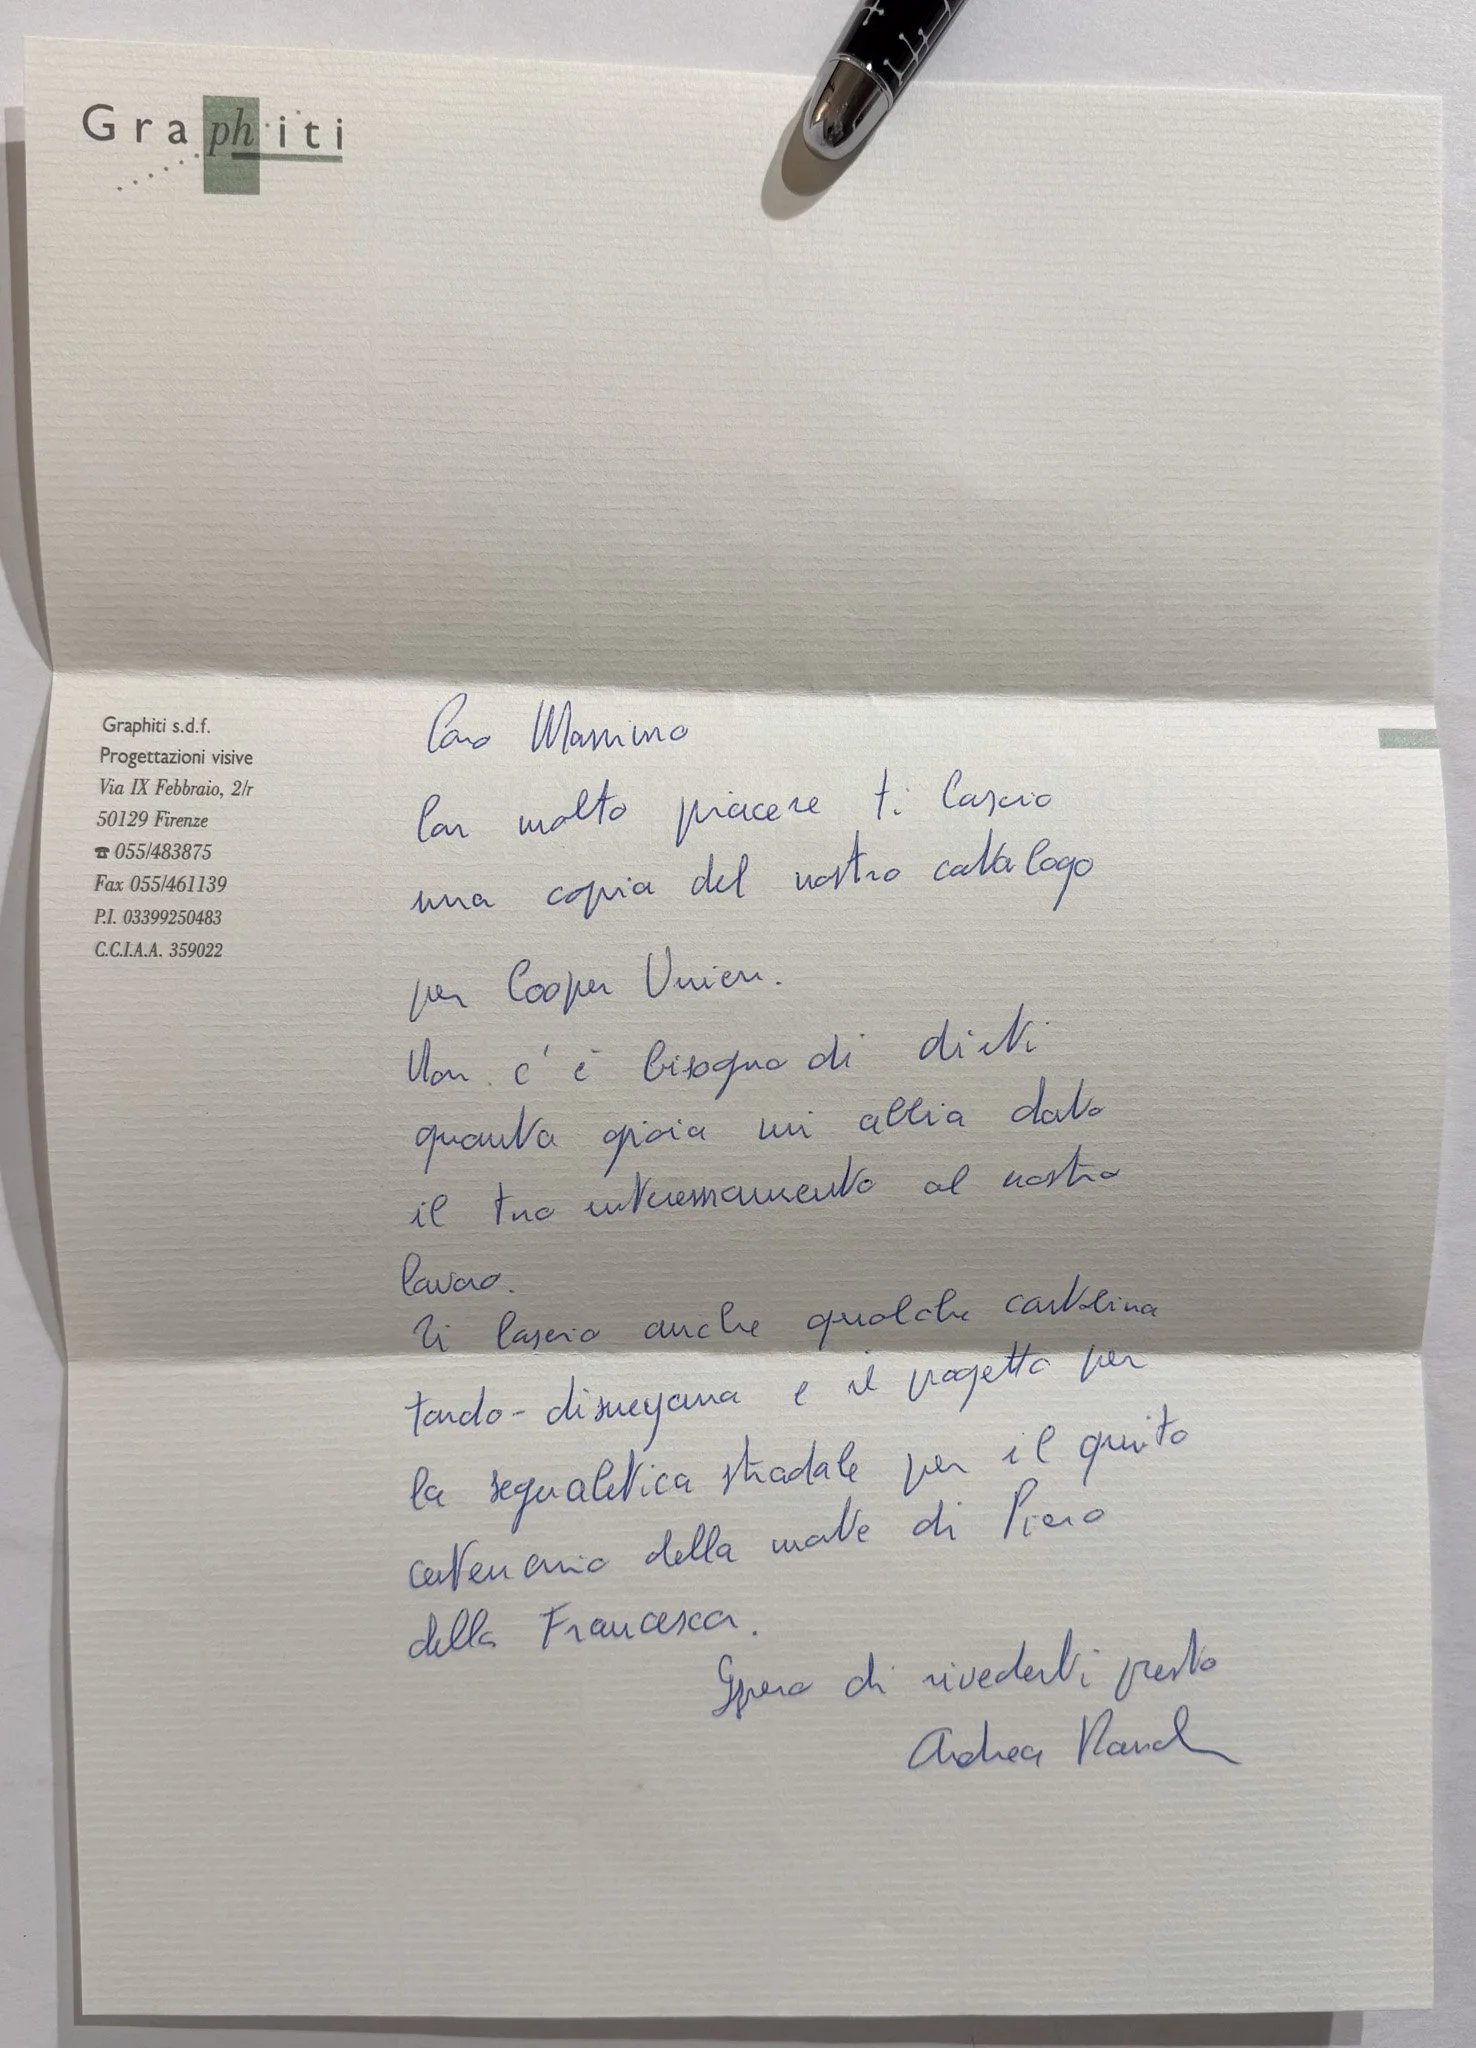 Graphiti
Graphiti s.d.f.
Progettazioni visive
Via IX Febbraio, 2/r
50129 Firenze
☎ 055/483875
Fax 055/461139
P.I. 03399250483
C.C.I.A.A. 359022
Caro Massimo
Con molto piacere ti lascio
una copia del nostro catalogo
per Cooper Union.
Non c'è bisogno di dirti
quanta gioia mi abbia dato
il tuo interessamento al nostro
lavoro.
Ti lascio anche qualche cartolina
tardo-disneyana e il progetto per
la segnaletica stradale per il quinto
centenario della morte di Piero
della Francesca.
Spero di rivederti presto
Andrea